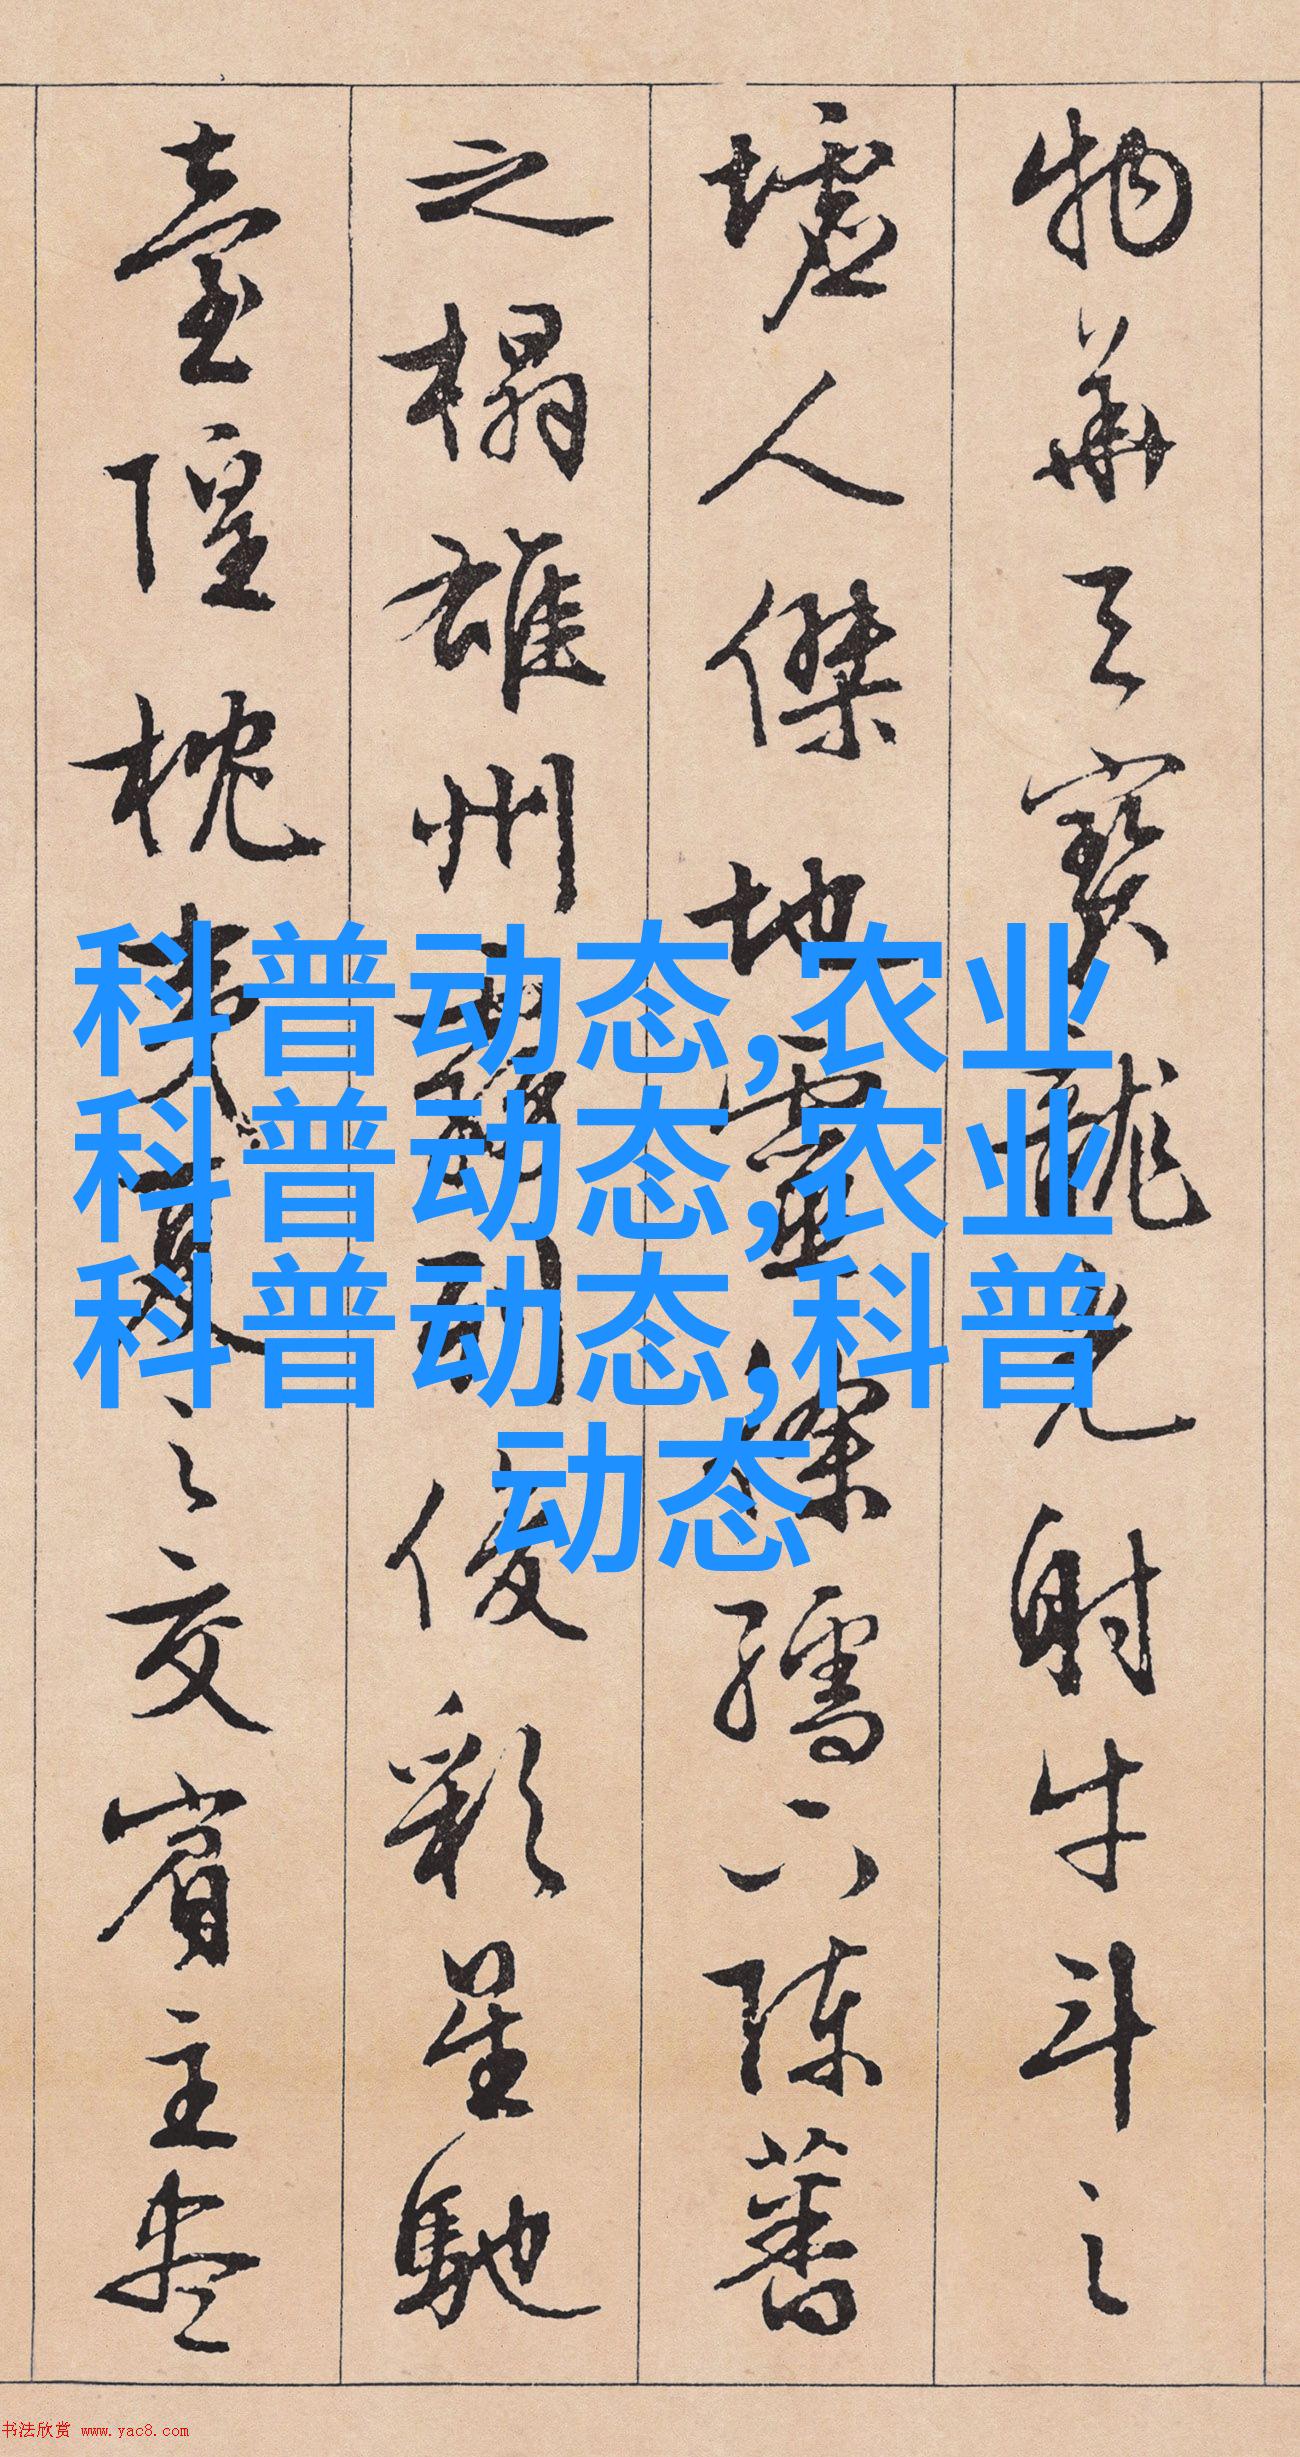 物華天寶龍光射牛斗之
墟人傑地靈徐孺下陳蕃
之榻雄州霧列俊彩星馳
臺隍枕夷夏之交賓主盡
科普动态,农业
科普动态,农业
科普动态,科普
动态
书法欣赏 www.yac8.com